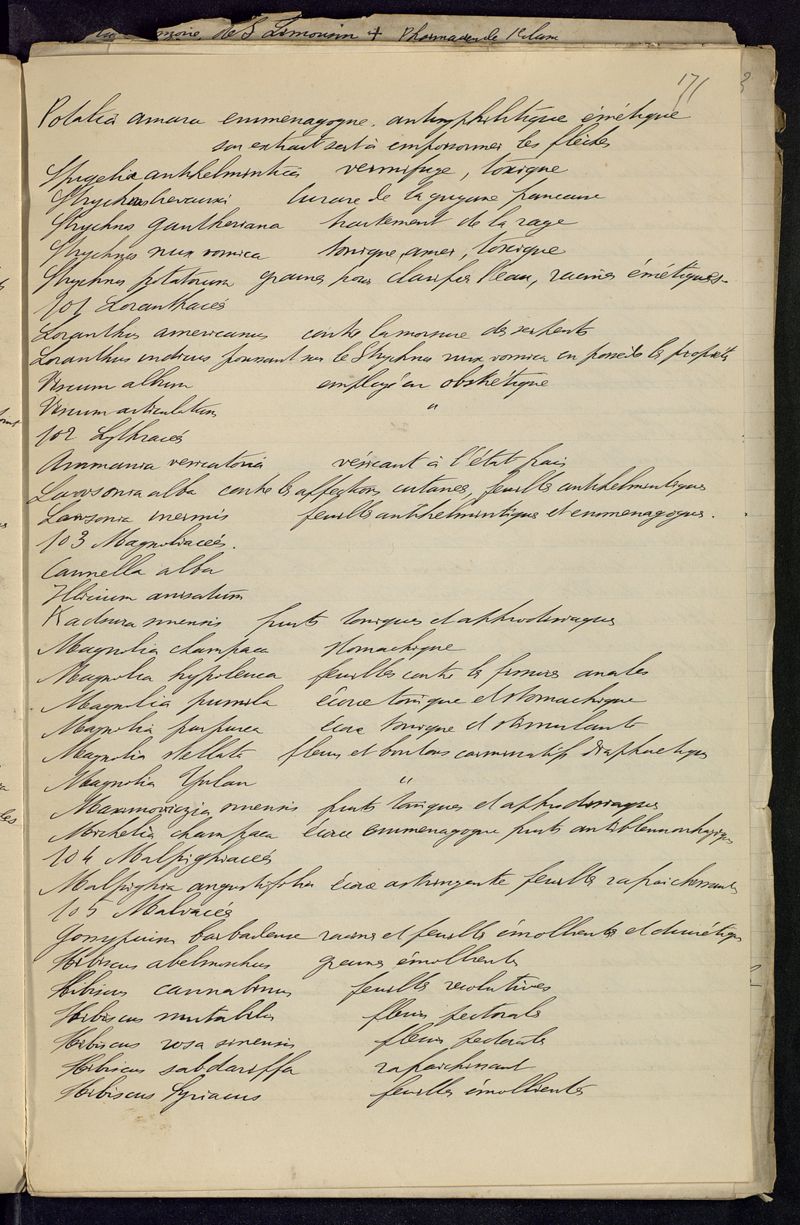 de S Limousin + Pharmacien de 1e classe
171
Potalia amara emmenagogue. antisyphilitique émétique
son extrait sert à empoisonner les flèches
Spigelia antihelmintica vermifuge, toxique
Strychnos curare de la guyane francaise
Strychnos gautheriana traitement de la rage
Strychnos nux vomica tonique, amer, toxique
Strychnos potatorum graines pour clarifier l'eau, racines émétiques
101 Loranthacés
Loranthus americanus contre la morsure des serpents
Loranthus indicus poussant sur le Strychnos nux vomica en possède les propriétés
Viscum album employé en obstétrique
Viscum articulatum "
102 Lythracés
Ammania vesicatoria vésicant à l'état frais
Lawsonia alba contre les affections cutanés, feuilles antihelmintiques
Lawsonia inermis feuilles antihelmintiques et enomenagogues.
103 Magnoliacées.
Cannella alba
Illicium anisatum
Kadsura sinensis fruits toniques et aphrodisiaques
Magnolia champaca stomachique
Magnolia hypoleuca feuilles contre les fissures anales
Magnolia pumila écorce tonique et stomachique
Magnolia purpurea écorce tonique et stimulante
Magnolia stellata fleurs et boutons carminatifs diaphoretiques
Magnolia Yulan "
Maximowiczia sinensis fruits toniques et aphrodisiaques
Michelia champaca écorce emmenagogue fruits antiblennorhagiques
104 Malpighiacées
Malpighia angustifolia écorce astringente feuilles rafraichissantes
105 Malvacés
Gossypium barbadense racines et feuilles émollientes et diurétiques
Hibiscus abelmoschus graines émollientes
Hibiscus cannabinus feuilles resolutives
Hibiscus mutabilis fleurs pectorales
Hibiscus rosa sinensis fleurs pectorales
Hibiscus sabdariffa rafraichissant
Hibiscus Syriacus feuilles émollientes